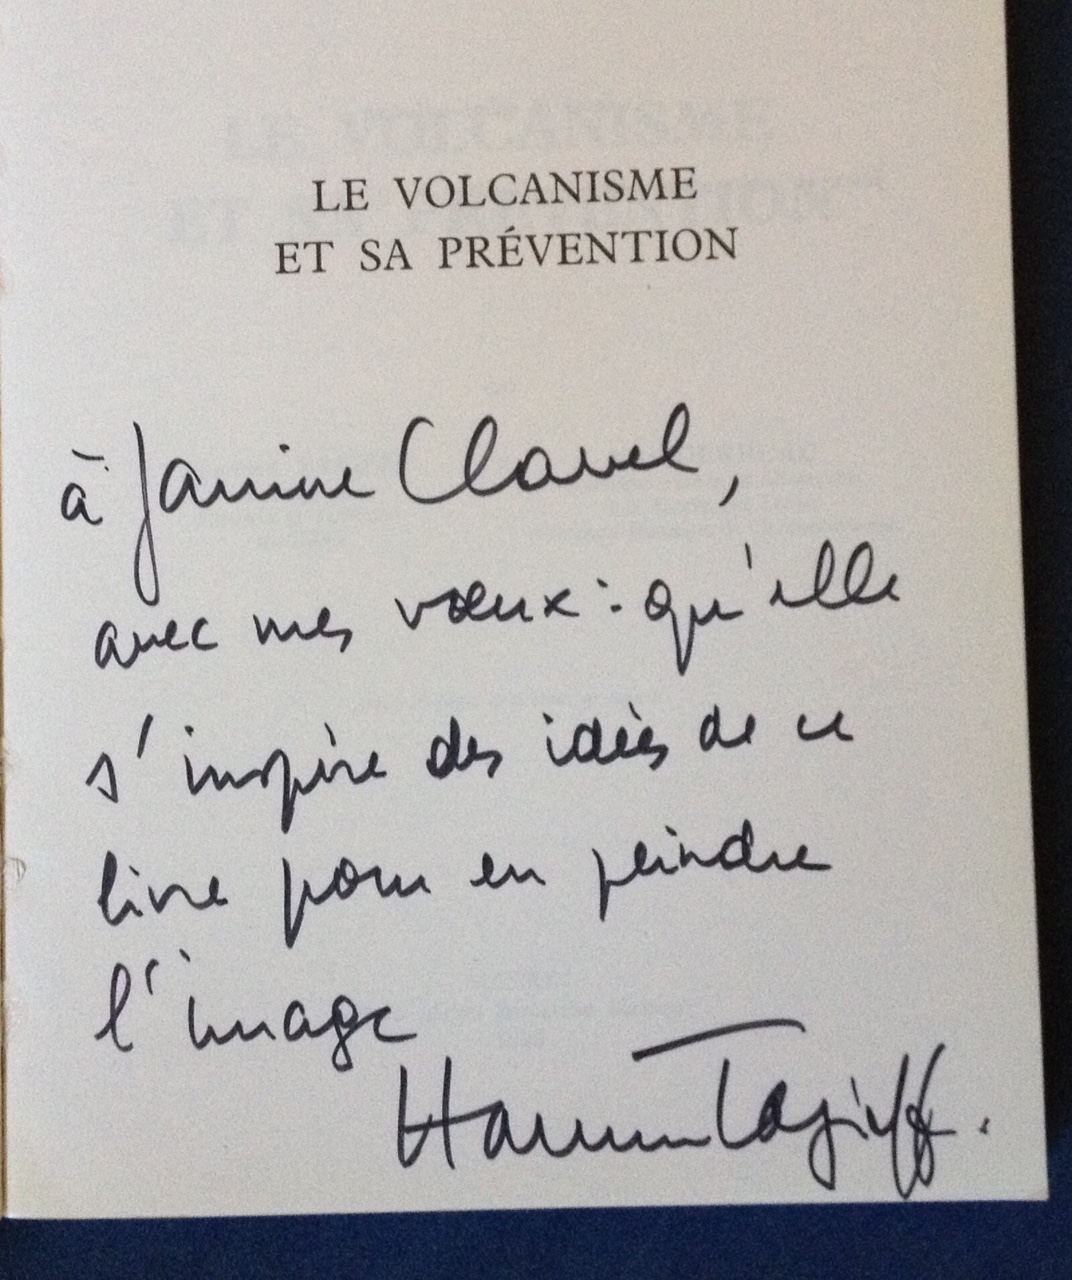 LE VOLCANISME
ET SA PRÉVENTION
à Janine Clavel,
avec mes vœux : qu'elle
s'inspire des idées de ce
livre pour en peindre
l'image
Haroun Tazieff.